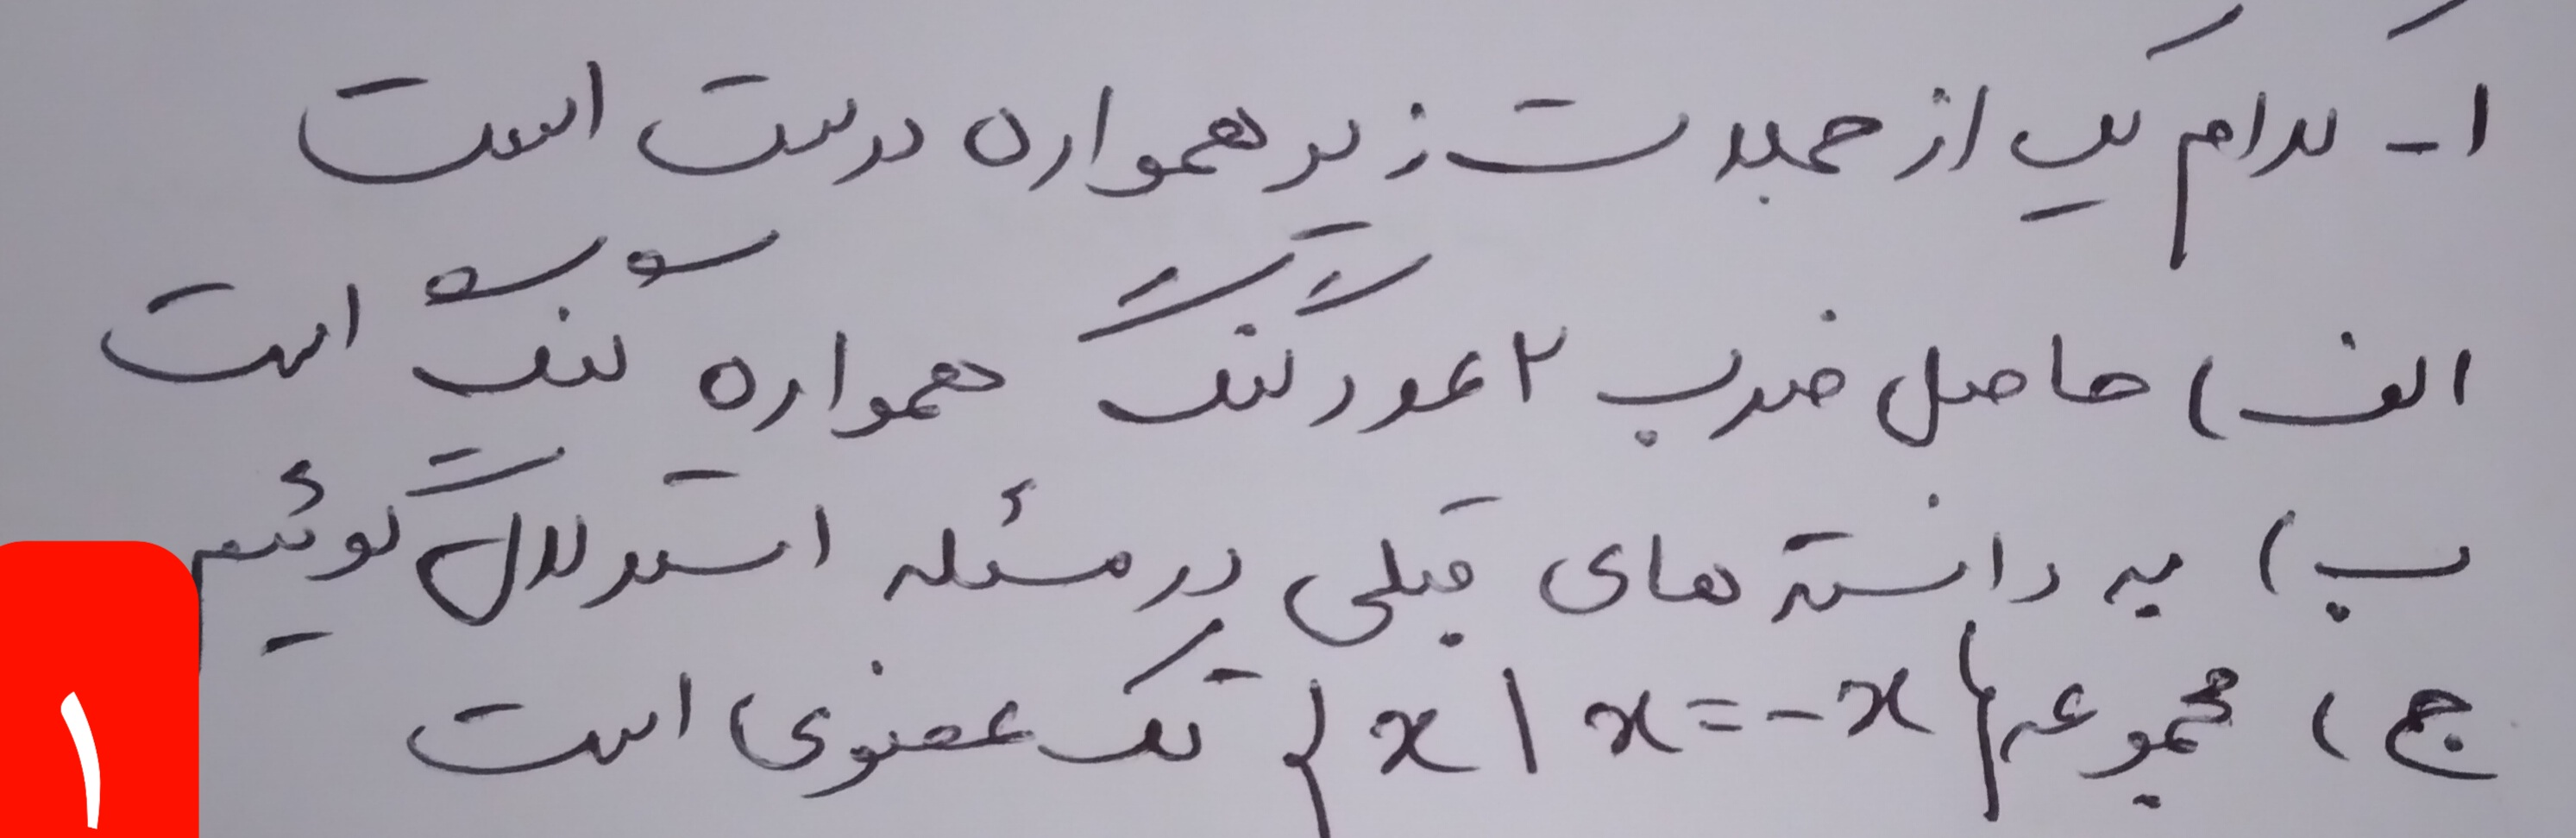 ۱- کدام یک از جملات زیر همواره درست است
الف) حاصل ضرب ۲ عدد گنگ همواره گنگ است
ب) به دانسته های قبلی در مسئله استدلال گوئیم
ج) مجموعه {x | x = -x} تک عضوی است
۱